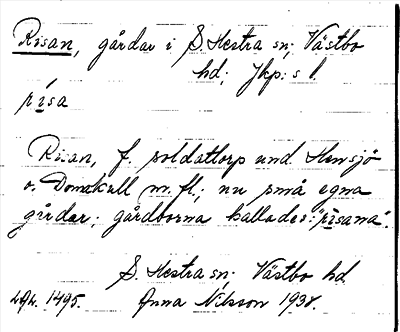 Risan, gårdar i S. Hestra sn; Västbo
hd; Jkp:s l.
rísa
Risan, f. soldattorp und Hensjö
o. Domskull m. fl.; nu små egna
gårdar; gårdborna kallades: "risana".
S. Hestra sn; Västbo hd.
1495. Anna Nilsson 1931.